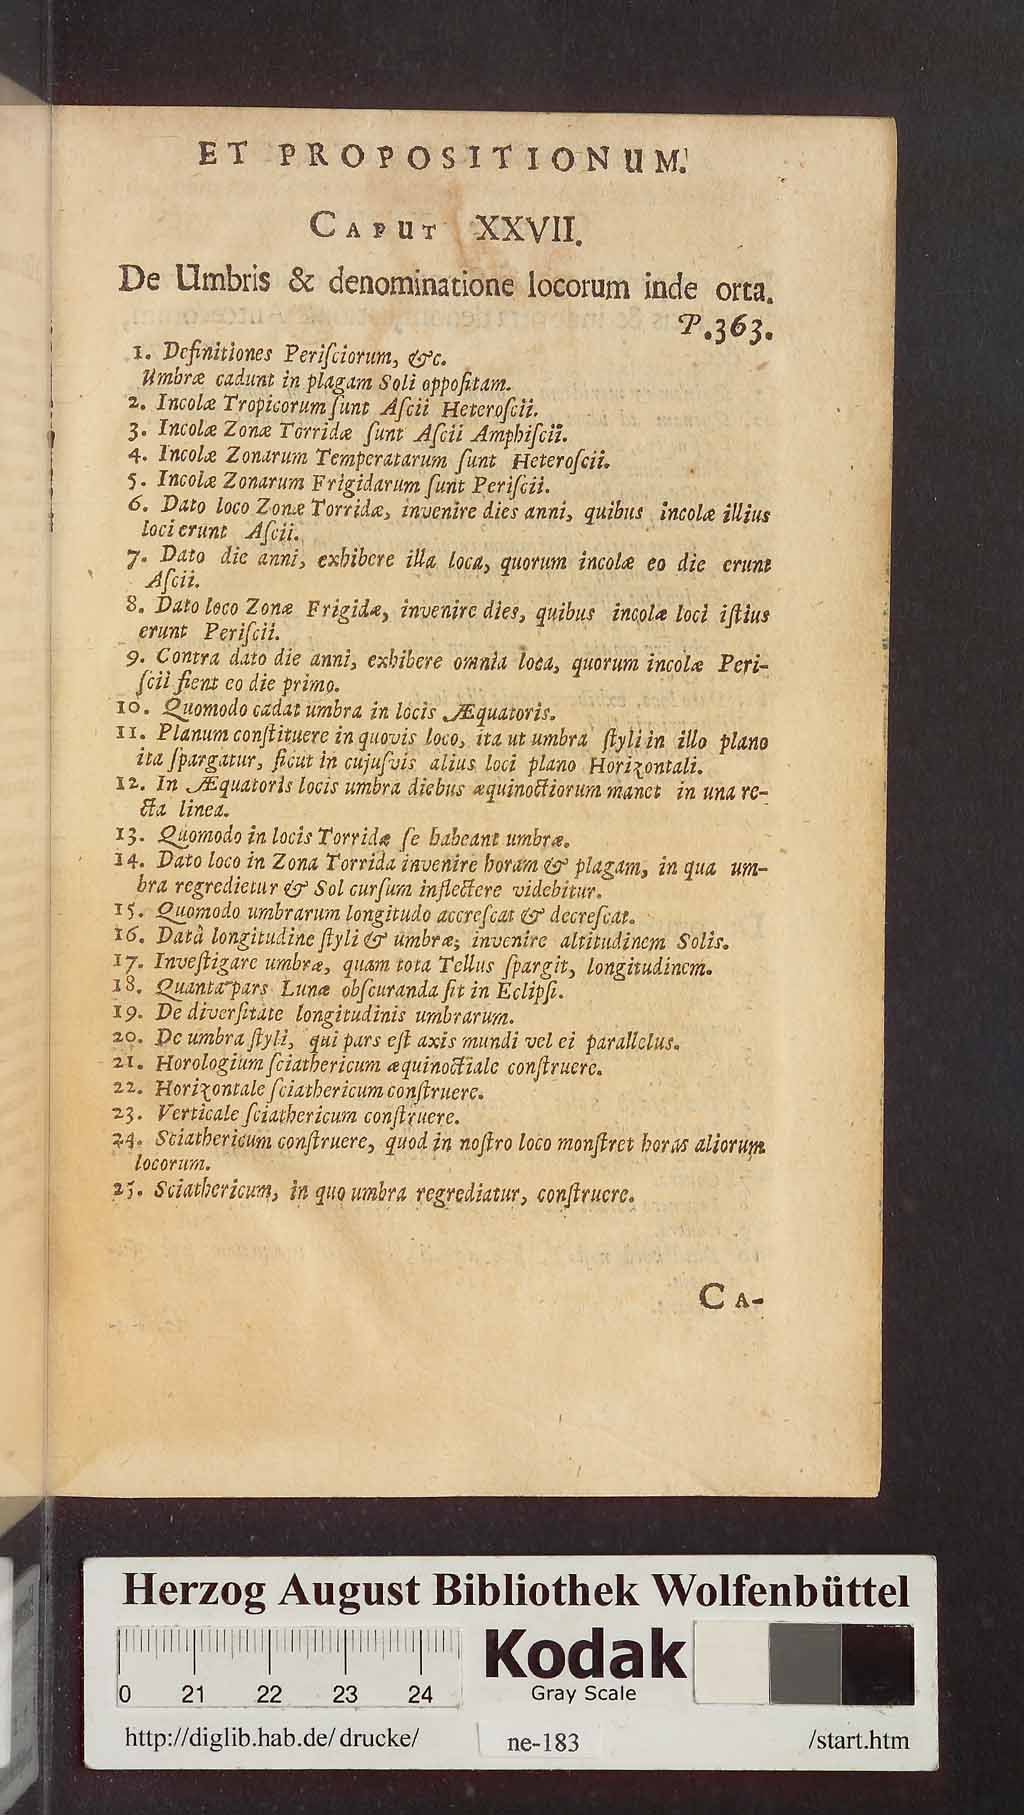 ET PROPOSITIONUM.
CAPUT XXVII.
De Umbris & denominatione locorum inde orta.
P.363.
1. Definitiones Periſciorum, &c.
Umbræ cadunt in plagam Soli oppoſitam.
2. Incolæ Tropicorum ſunt Aſcii Heteroſcii.
3. Incolæ Zonæ Torridæ ſunt Aſcii Amphiſcii.
4. Incolæ Zonarum Temperatarum ſunt Heteroſcii.
5. Incolæ Zonarum Frigidarum ſunt Periſcii.
6. Dato loco Zonæ Torridæ, invenire dies anni, quibus incolæ illius
loci erunt Aſcii.
7. Dato die anni, exhibere illa loca, quorum incolæ eo die erunt
Aſcii.
8. Dato loco Zonæ Frigidæ, invenire dies, quibus incolæ loci iſtius
erunt Periſcii.
9. Contra dato die anni, exhibere omnia loca, quorum incolæ Peri-
ſcii fient eo die primo.
10. Quomodo cadat umbra in locis Æquatoris.
11. Planum conſtituere in quovis loco, ita ut umbra ſtyli in illo plano
ita ſpargatur, ſicut in cujuſvis alius loci plano Horizontali.
12. In Æquatoris locis umbra diebus æquinoctiorum manet in una re-
cta linea.
13. Quomodo in locis Torridæ ſe habeant umbræ.
14. Dato loco in Zona Torrida invenire horam & plagam, in qua um-
bra regredietur & Sol curſum inflectere videbitur.
15. Quomodo umbrarum longitudo accreſcat & decreſcat.
16. Datâ longitudine ſtyli & umbræ, invenire altitudinem Solis.
17. Inveſtigare umbræ, quam tota Tellus ſpargit, longitudinem.
18. Quanta pars Lunæ obſcuranda ſit in Eclipſi.
19. De diverſitate longitudinis umbrarum.
20. De umbra ſtyli, qui pars eſt axis mundi vel ei parallelus.
21. Horologium ſciathericum æquinoctiale conſtruere.
22. Horizontale ſciathericum conſtruere.
23. Verticale ſciathericum conſtruere.
24. Sciathericum conſtruere, quod in noſtro loco monſtret horas aliorum
locorum.
25. Sciathericum, in quo umbra regrediatur, conſtruere.
CA-
Herzog August Bibliothek Wolfenbüttel
0 21 22 23 24
Kodak
Gray Scale
http://diglib.hab.de/drucke/ ne-183 /start.htm